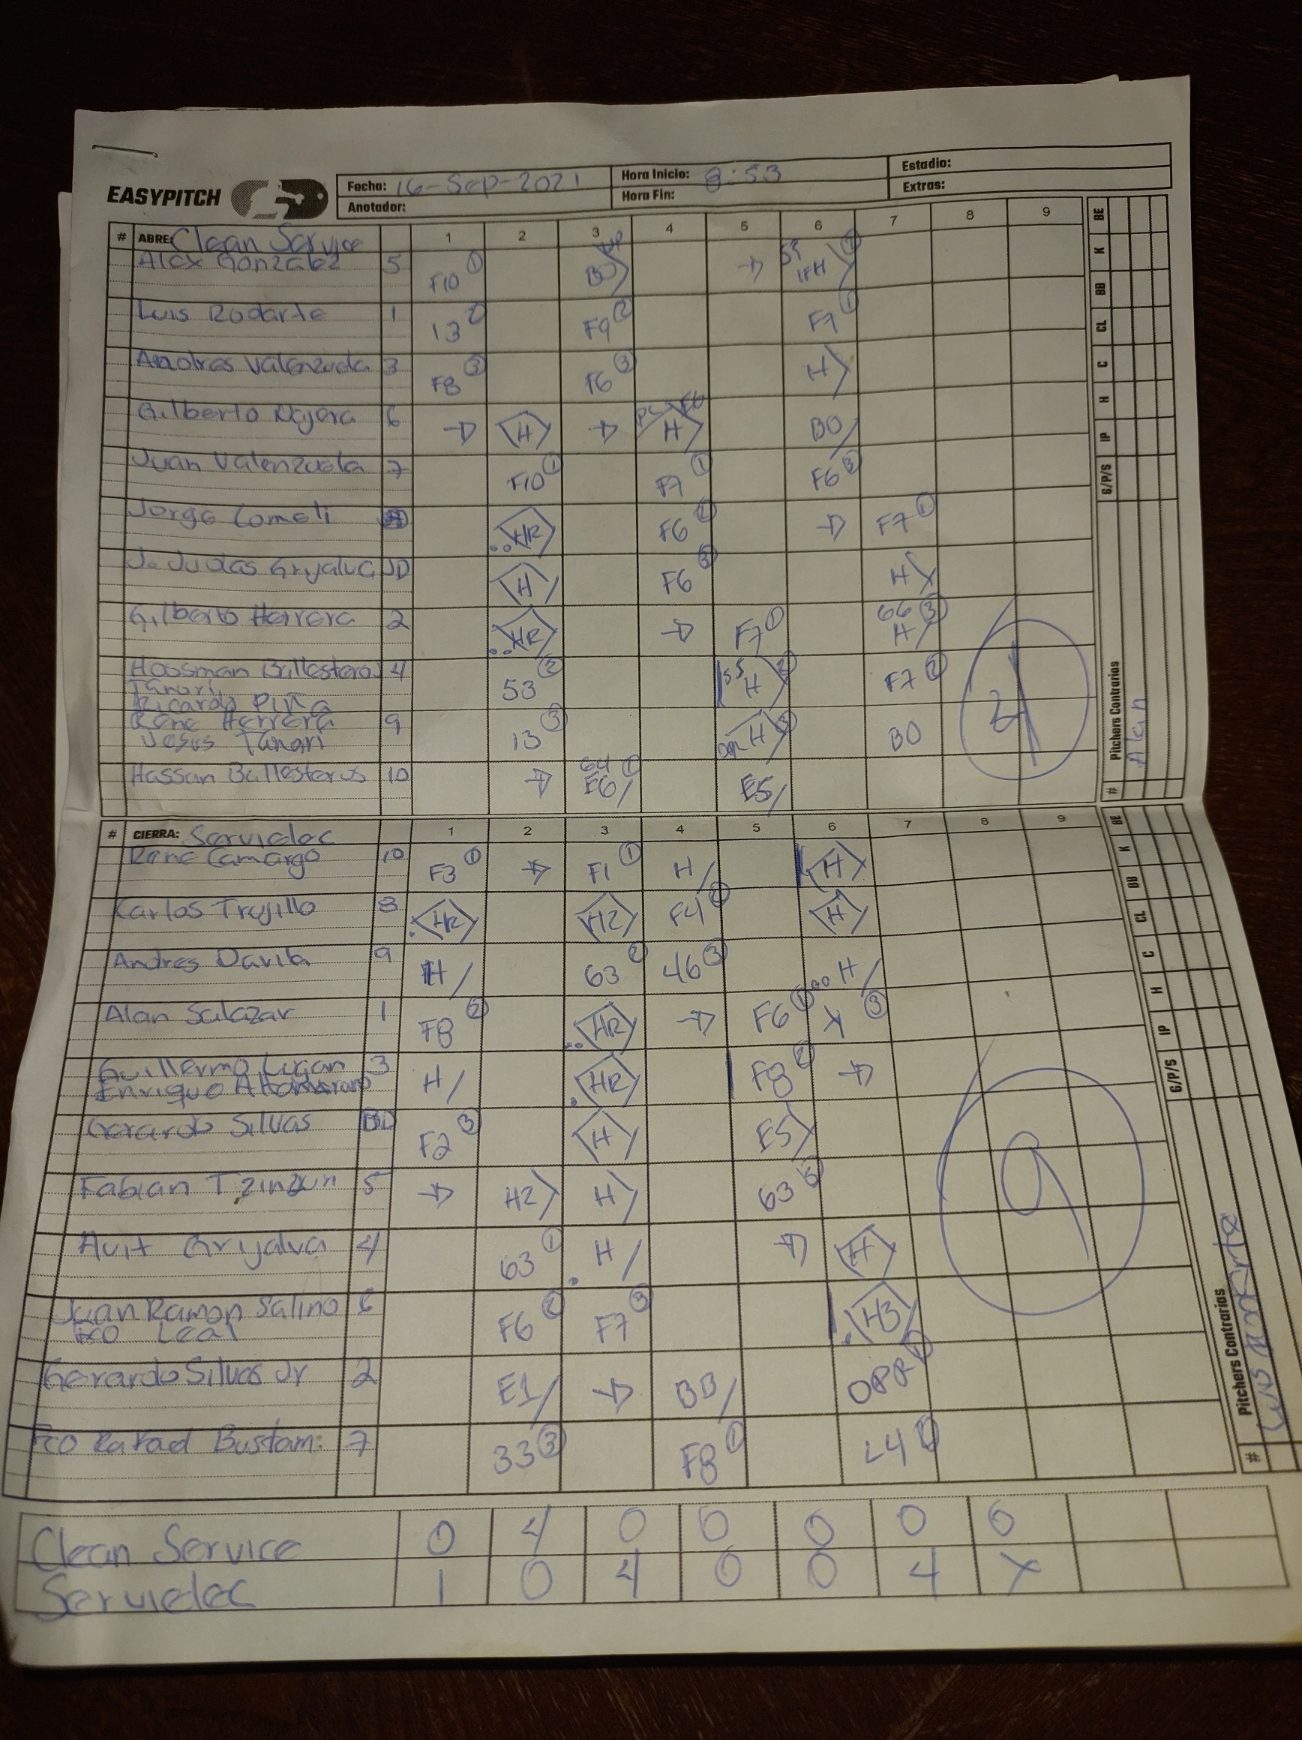 EASYPITCH
Fecha: 16-Sep-2021
Hora Inicio: 8:53
Estadio:
Anotador:
Hora Fin:
Extras:
# ABRE: Clean Service 1 2 3 4 5 6 7 8 9
Alex Gonzalez 5 F10 ① BO
Luis Rodarte 1 13 2 F9 ② F7 ①
Andres Valenzuela 3 F8 ③ F6 ③ H
Gilberto Najera 6 → H → H BO
Juan Valenzuela 7 F10 ① F7 ① F6 ③
Jorge Comeli HR F6 ② → F7 ①
J. Judas Gryalva JD H F6 ③ H
Gilberto Herrera 2 HR → F7 ① 66 ③ H
Hoosman Ballesteros 4 53 ② H F7 ②
Tanori
Ricardo Piña
Rene Herrera 9 13 ③ H BO
Jesus Tanori
Hassan Ballesteros 10 → 64 ① E6 E5
4
# CIERRA: Servielec 1 2 3 4 5 6 7 8 9
Rene Camargo 10 F3 ① → F1 ① H H
Carlos Trujillo 8 HR H2 F4 ② H
Andres Davila 9 H 63 ② 46 ③ H
Alan Salazar 1 F8 ② HR → F6 ① ③
Guillermo Lujan 3 H HR F8 ② →
Enrique
Gerardo Silvas F2 ③ H E5
Fabian Tzinzun 5 → H2 H 63 ③
Avit Gryalva 4 63 ① H → H
Juan Ramon Salino 6 F6 ② F7 ③ H3
Fco Leal
Gerardo Silvas Jr 2 E1 → BB
Fco Rafael Bustam 7 33 ③ F8 ① L4
9
BE K BB CL C H IP G/P/S
Pitchers Contrarios
# Alan
BE K BB CL C H IP G/P/S
Pitchers Contrarios
# Luis Rodarte
Clean Service 0 4 0 0 0 0 0
Servielec 1 0 4 0 0 4 X